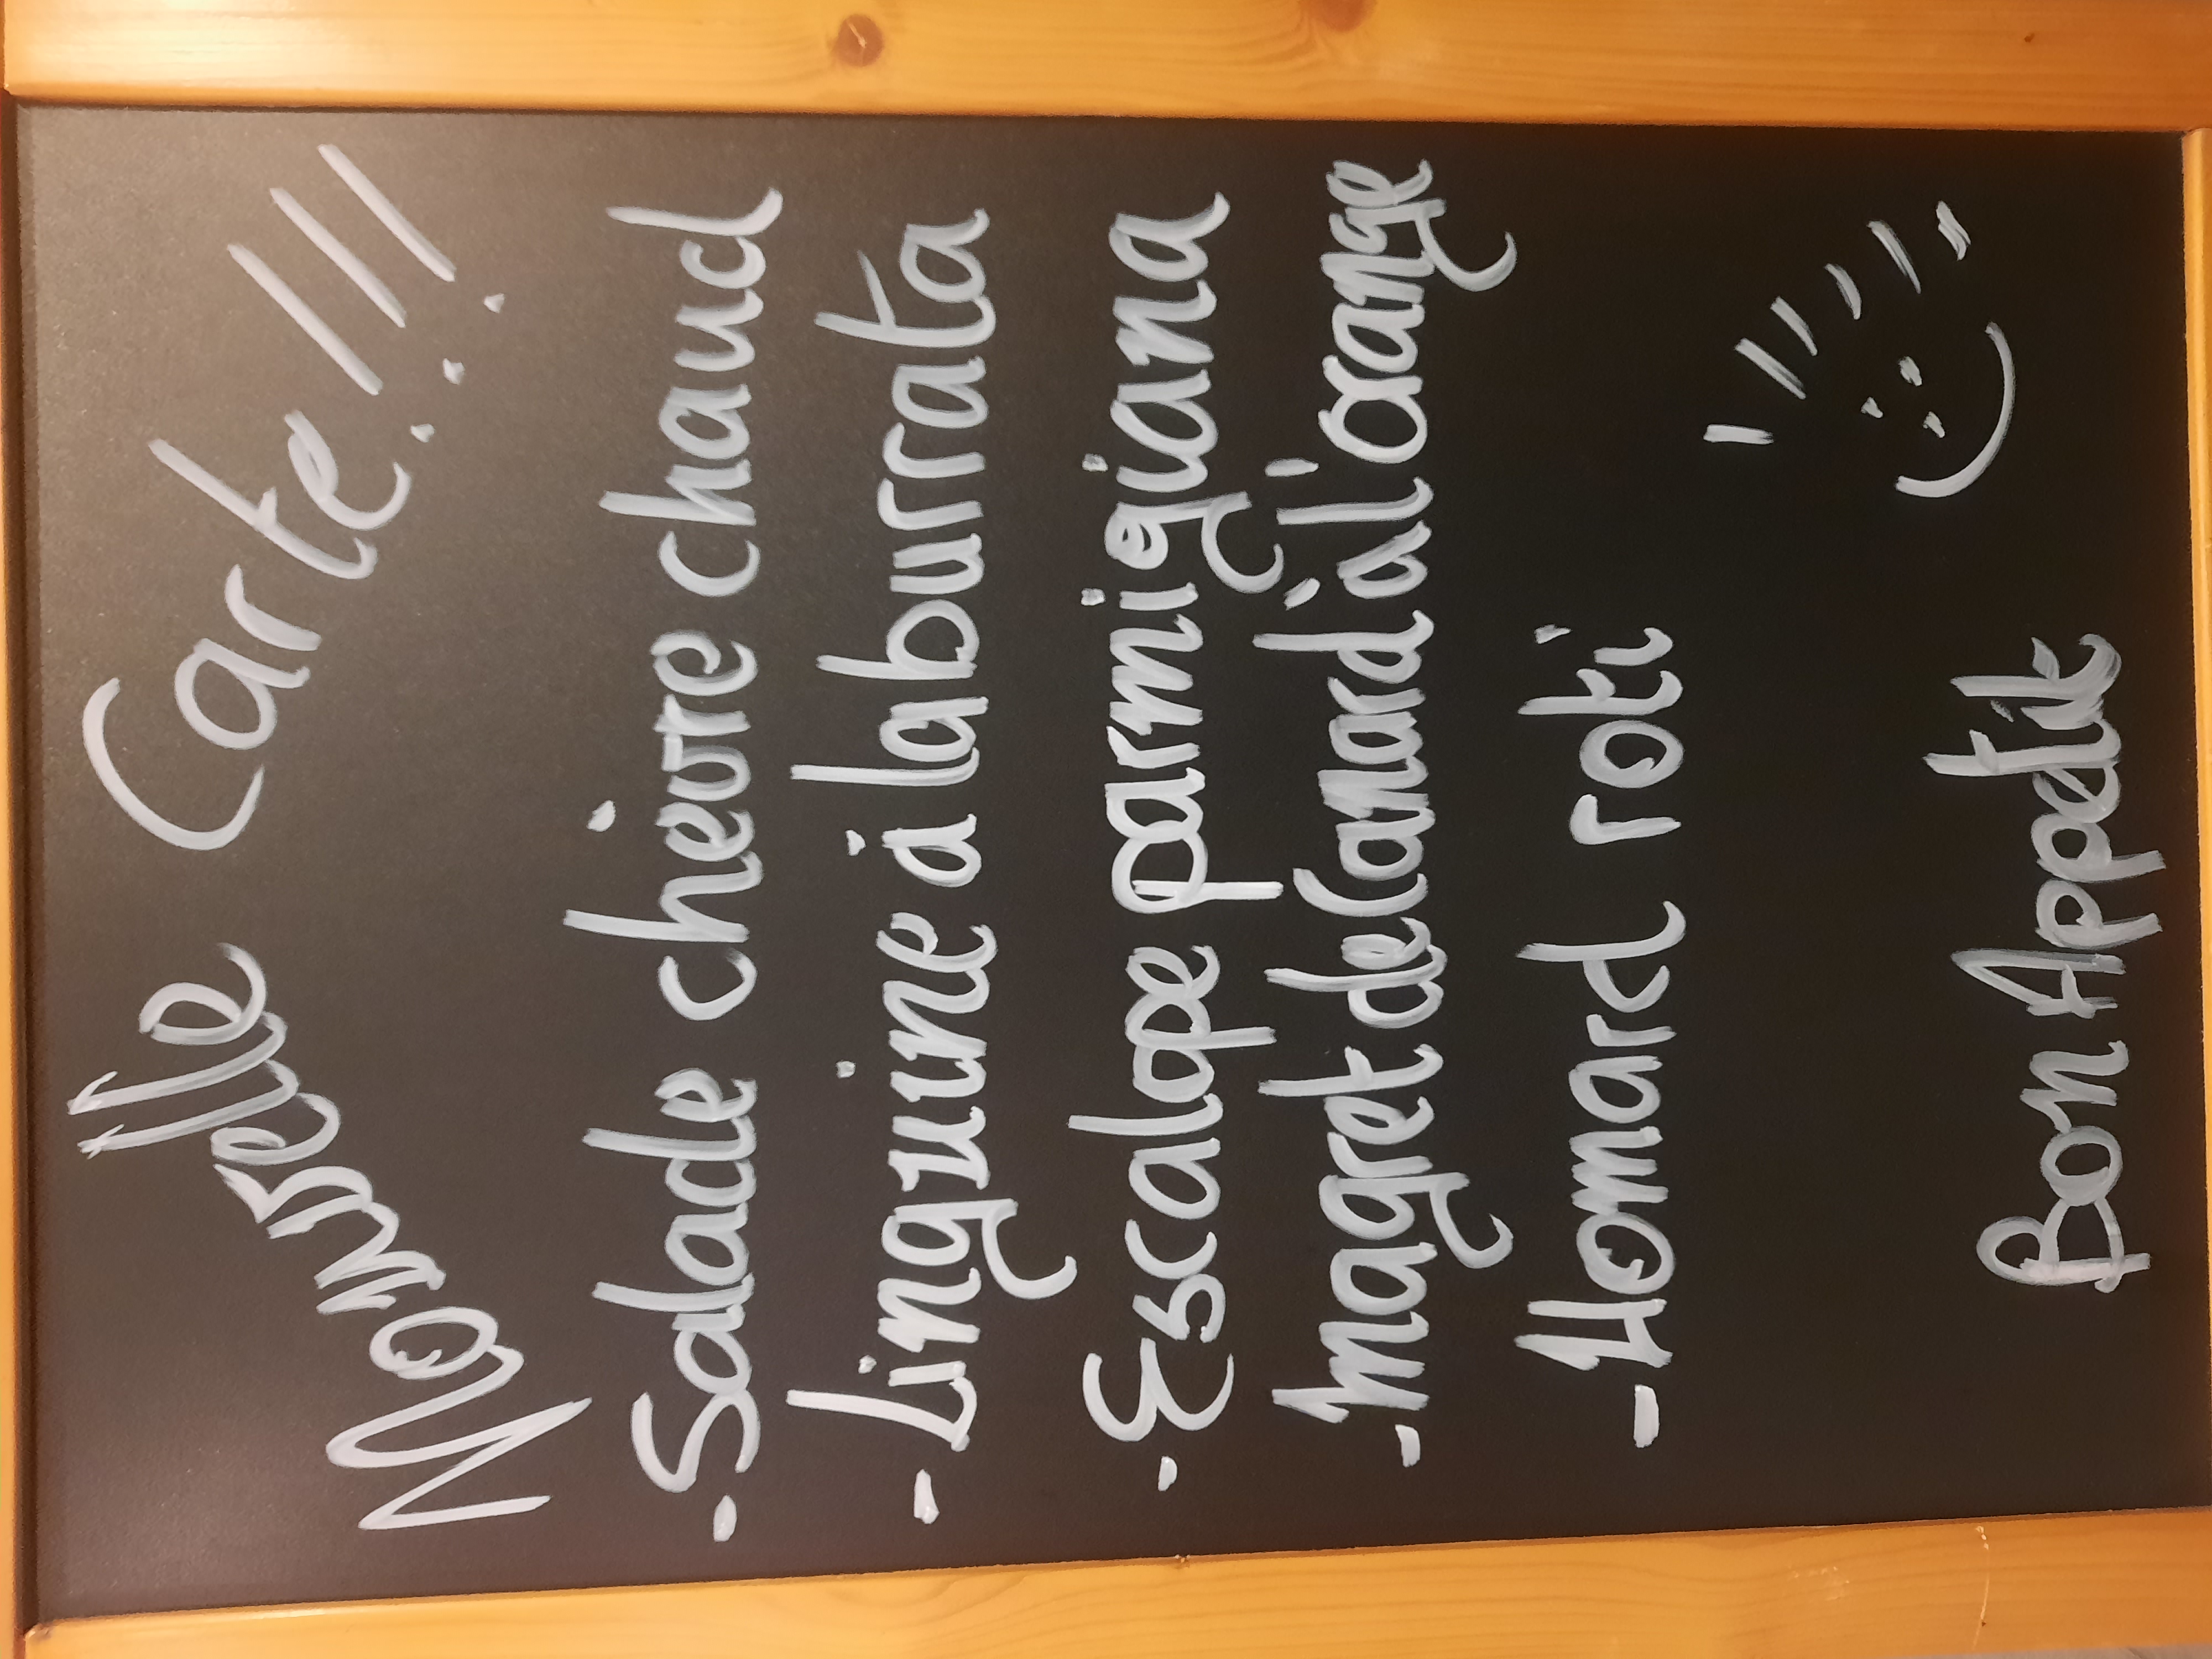 Nouvelle Carte!!!
-Salade chèvre chaud
-Linguine à la burrata
-Escalope parmigiana
-Magret de Canard à l'orange
-Homard roti
Bon Appétit